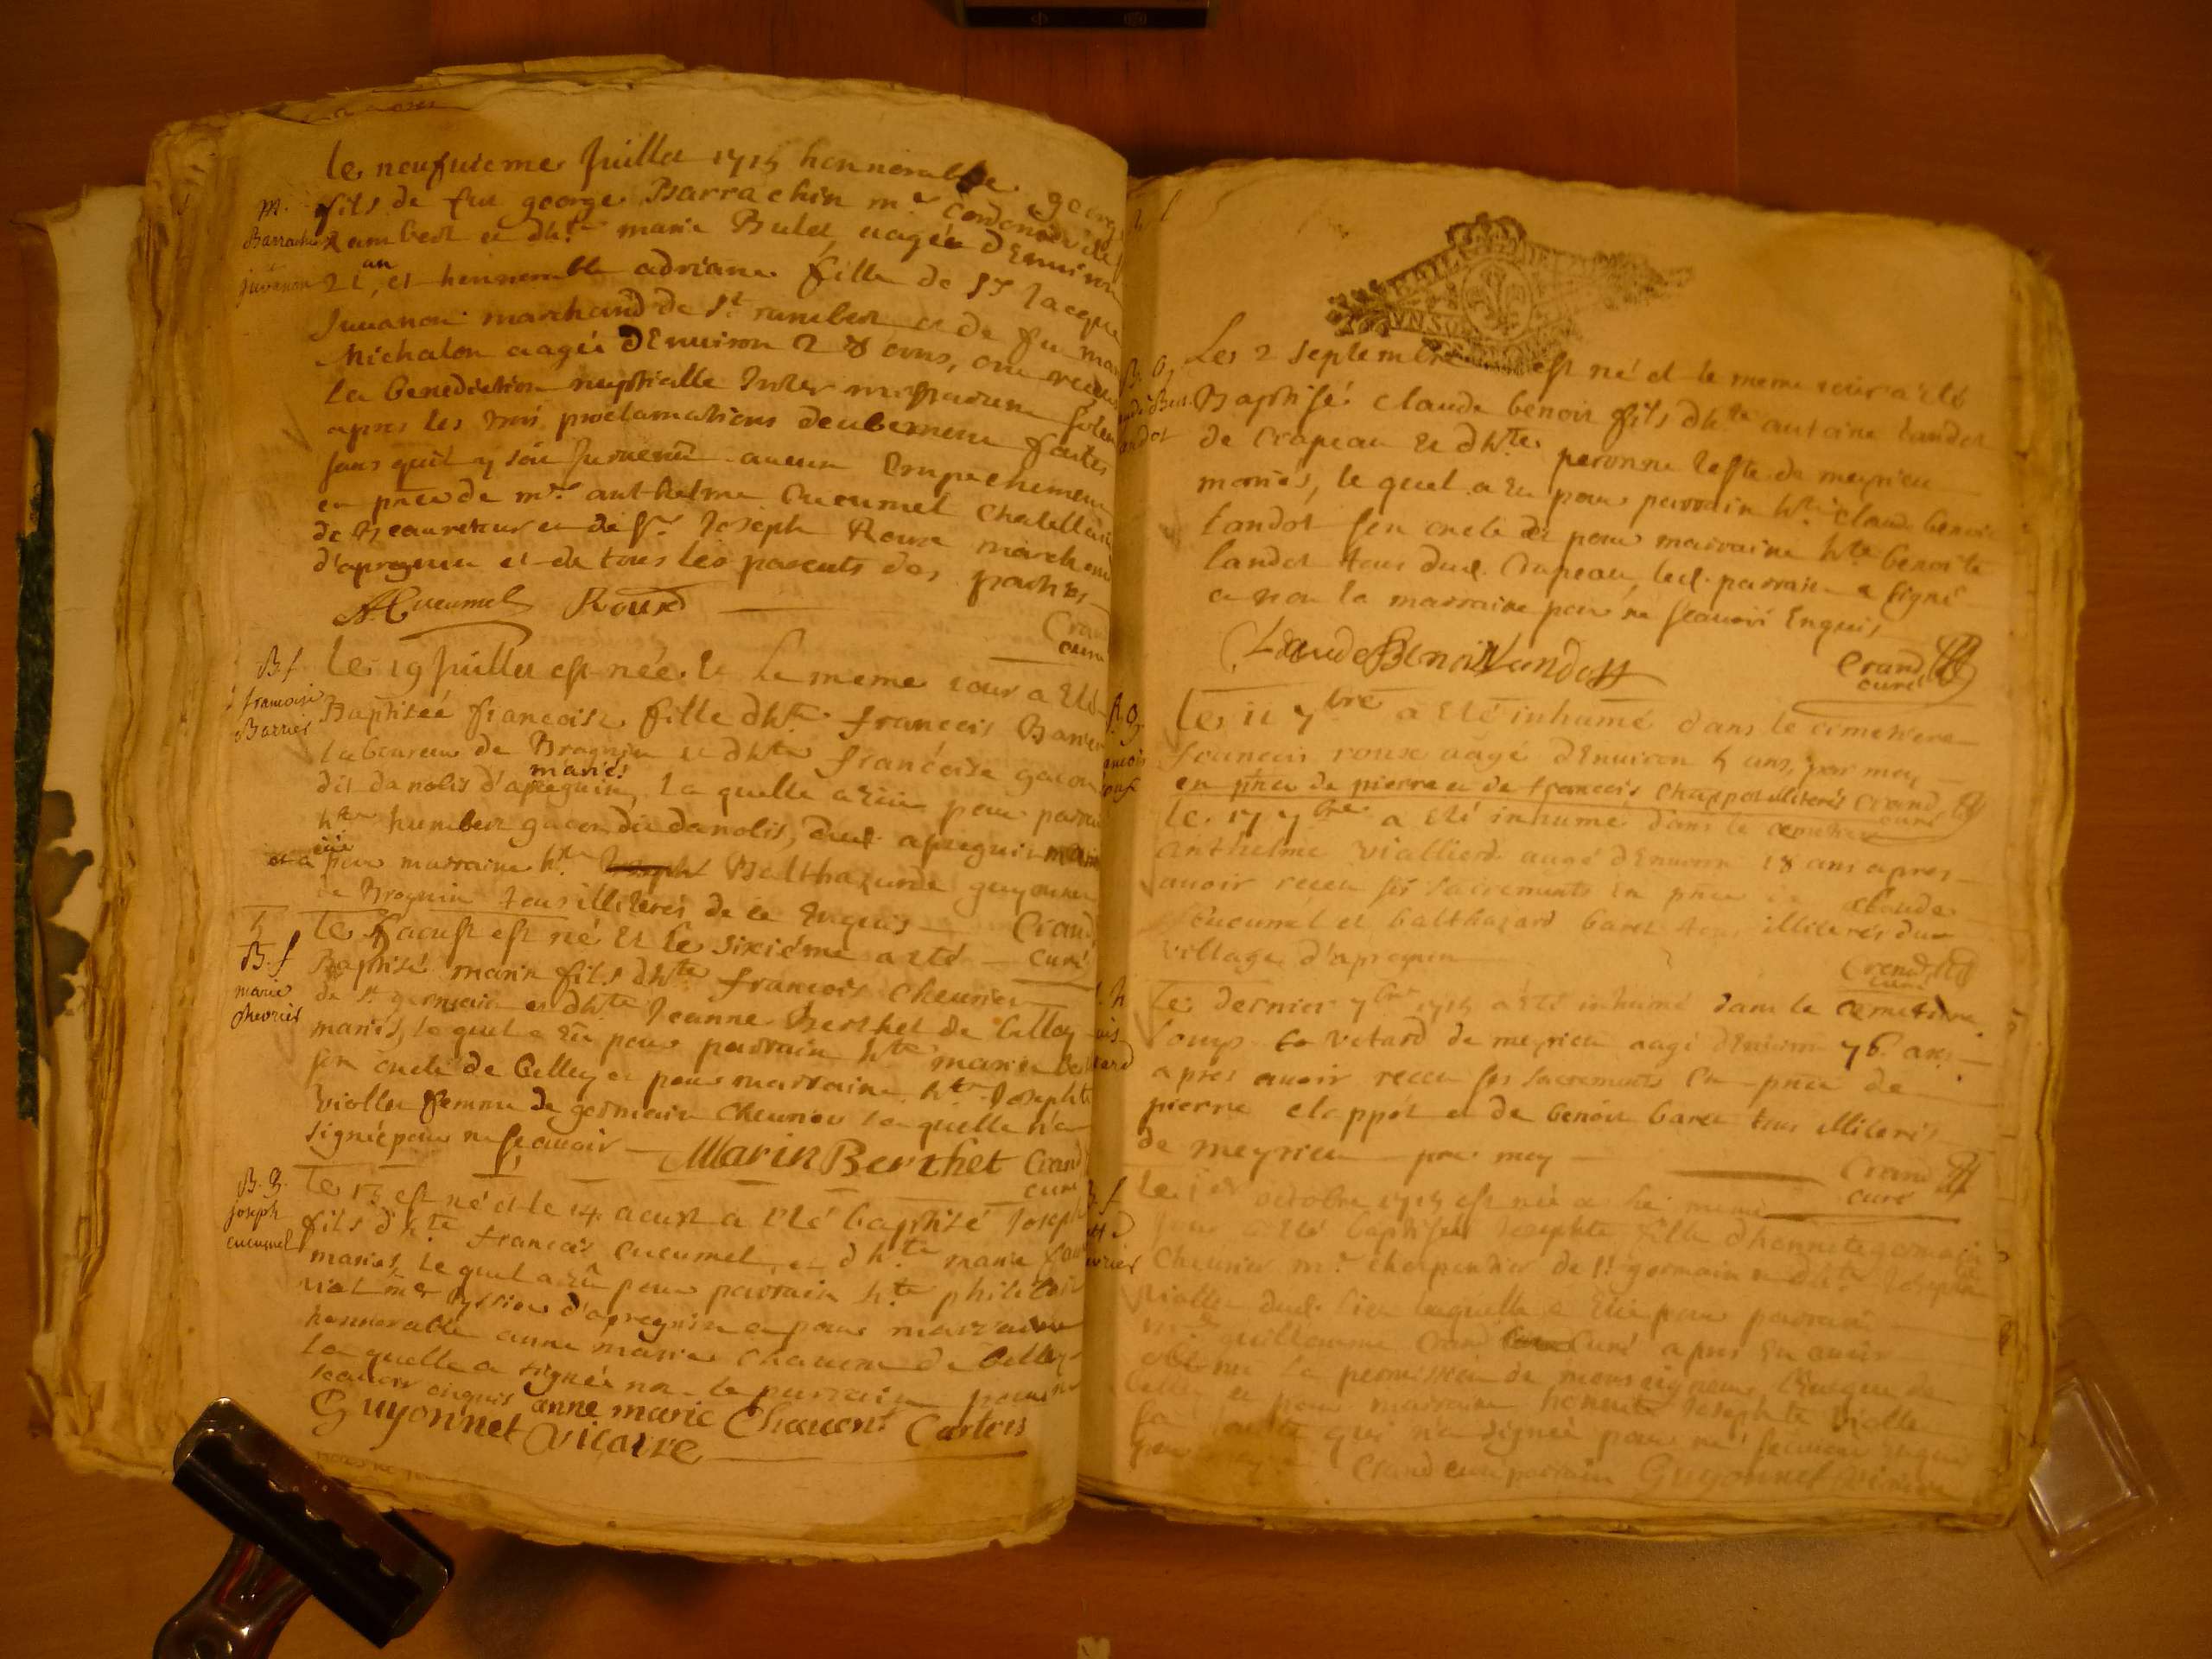 le neufuieme Juillet 1715 honnorable george
M. fils de feu george Barrachin m.e Cordonnier de St
Barrachin Rambert et dh.te marie Bulet, aagée d'Enuiron
Juvanon 21 an, et honnorable adriane fille de Sr Jacque
Juuanon marchand de St rambert et de fu marie
Michalon aagée d'Enuiron 28 ans, ont receu
la benediction nuptialle Inter missarum solem
apres les trois proclamations deuëment faites
sans quil y soit suruenu aucun Empechement
en pnce de m.re anthelme Cucumel Chatellain
de Beauretour et de Sr Joseph Roux marchand
d'apregnin et de tous les parents des parties
A Cucumel Roux
Crand
curé
B. f le 19 Juillet est née et le meme iour a Eté
francoise Baptisée francoise fille dh.te francois Barrier
Barrier laboureur de Brognin et dh.te francoise gacon
mariés
dit danolis d'apregnin, la quelle a eu pour parrain
h.te humbert gacon dit danolis, dud. apregnin
et a eu pour marraine h.te Balthazarde guyonnet
de Brognin tous illiterés de ce Enquis Crand
5 le 5 aoust est né et le sixiéme a eté curé
B. f Baptisé marin fils dh.te francois Cheurier
marie de st germain et dh.te Jeanne Berthet de Belley
chevrier mariés, le quel a eu pour parrain h.te marin Berthet
son oncle de Belley et pour marraine h.te Josephte
Viollet femme de germain Cheurier la quelle n'a
signé pour ne scauoir MarinBerthet Crand
curé
B. g. le 13 est né et le 14 aoust a eté baptisé Joseph
joseph fils dh.te francois Cucumel, et dh.te marie
cucumel mariés, le quel a eu pour parrain h.te philibert
viol m.e tyssier d'apregnin et pour marraine
honnorable anne marie Chauent de Belley
la quelle a signée non le parrain pour ne
scauoir enquis anne marie Chauent Cartois
Guyonnet vicaire
Les 2 septembre est né et le meme iour a eté
Baptisé claude benoit fils dh.te antoine landot
de Crapeau et dh.te peronne teste de meyrieu
mariés, le quel a eu pour parrain h.te claude benoit
landot son oncle et pour marraine h.te benoite
landot tous dud. Crapeau, led. parrain a signé
et non la marraine pour ne scauoir Enquis
Claude Benoit landoz
Crand
curé
le 11 7bre a eté inhumé dans le cimetiere
francois roux aagé d'Enuiron 5 ans, par moy
en pnce de pierre et de francois Chappot illiterés Crand
curé
le 17 7bre a eté inhumé dans le cemetiere
anthelme Viallierd aagé d'Enuiron 18 ans apres
auoir receu ses sacrements en pnce de claude
Cucumel et balthazard baret tous illiterés du
village d'apregnin
Crand
curé
le dernier 7bre 1715 a eté inhumé dans le cemetiere
loup vetard de meyrieu aagé d'Enuiron 76 ans
apres auoir receu ses sacrements en pnce de
pierre clappot et de benoit baret tous illiterés
de meyrieu par moy
Crand
curé
le 1er octobre 1715 est née et le meme
jour a eté baptisée Josephte fille d'honnete germain
Cheurier m.e charpentier de st germain et dh.te Josephte
viollet dud. lieu laquelle a eue pour parrain
m.re guillaume Crand curé apres en auoir
obtenu la permission de monseigneur Eueque de
Belley et pour marraine honnete Josephte viollet
sa tante qui n'a signée pour ne scauoir enquis
par moy Crand curé parrain Guyonnet vicaire